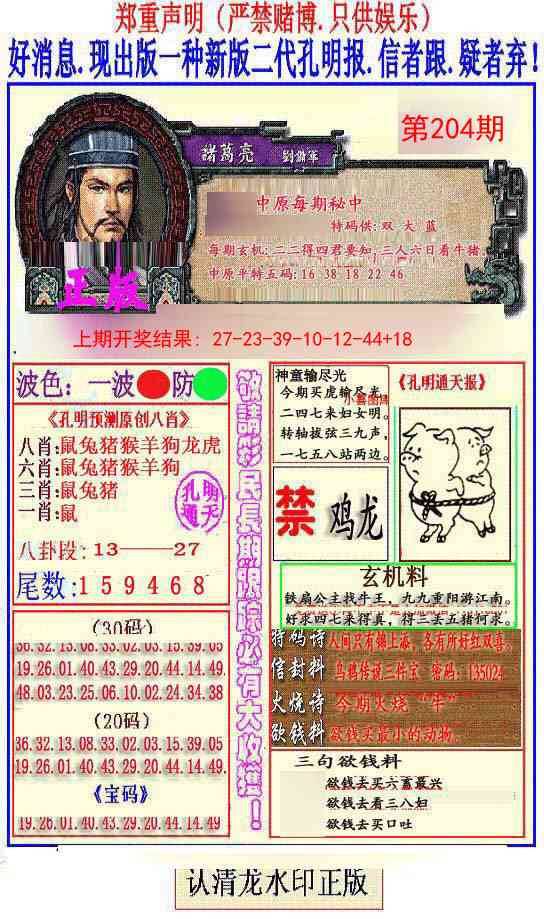 郑重声明（严禁赌博.只供娱乐）
好消息.现出版一种新版二代孔明报.信者跟.疑者弃!
諸葛亮 劉備軍
第204期
中原每期秘中
特码供:双 大 蓝
每期玄机:二二得四君要知,三人六日看牛猪.
中原平特五码:16 38 18 22 46
正版
上期开奖结果: 27-23-39-10-12-44+18
波色: 一波 防
《孔明预测原创八肖》
八肖:鼠兔猪猴羊狗龙虎
六肖:鼠兔猪猴羊狗
三肖:鼠兔猪
一肖:鼠
孔明
通天
八卦段:13——27
尾数:159468
敬請彩民長期跟踪必有大收獲!
神童输尽光
今期买虎输尽光
二四七来妇女明。
转轴拔弦三九声，
一七五八站两边。
《孔明通天报》
禁 鸡龙
玄机料
铁扇公主找牛王，九九重阳游江南。
好求四七来得真，得二去五猪何求。
(30码)
36.32.13.08.33.02.03.15.39.05
19.26.01.40.43.29.20.44.14.49
48.03.23.25.06.10.02.24.34.38
(20码)
36.32.13.08.33.02.03.15.39.05
19.26.01.40.43.29.20.44.14.49
《宝码》
19.26.01.40.43.29.20.44.14.49
特码诗 人间只有锦上添，各有所好红双喜。
信封料 乌鸦传说三件宝 密码：135024
火烧诗 今期火烧“牛”
欲钱料 欲钱买最小的动物。
三句欲钱料
欲钱去买六畜最兴
欲钱去看三八妇
欲钱去买口吐
认清龙水印正版